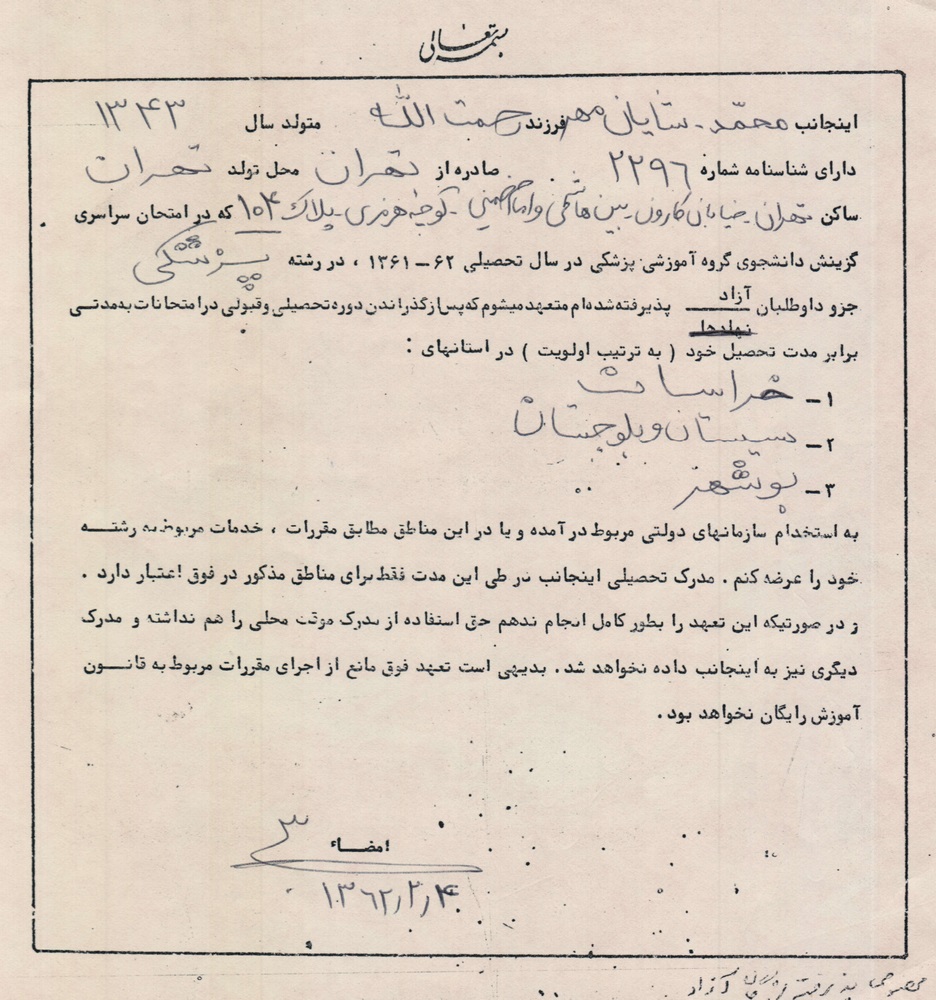 بسمه تعالی
اینجانب محمّد - شایان مهر فرزند رحمت الله متولد سال ۱۳۴۳
دارای شناسنامه شماره ۲۲۹۶ صادره از تهران محل تولد تهران
ساکن تهران - خیابان کارون - بین هاشمی و امام خمینی - کوچه هرمزی - پلاک ۱۰۴ که در امتحان سراسری
گزینش دانشجوی گروه آموزشی پزشکی در سال تحصیلی ۶۲ – ۱۳۶۱ ، در رشته پزشکی
جزو داوطلبان آزاد پذیرفته شده‌ام متعهد میشوم که پس از گذراندن دوره تحصیلی و قبولی در امتحانات به مدتی
نهادها
برابر مدت تحصیل خود ( به ترتیب اولویت ) در استانهای :
۱ – خراسان
۲ – سیستان و بلوچستان
۳ – بوشهر
به استخدام سازمانهای دولتی مربوط در آمده و یا در این مناطق مطابق مقررات ، خدمات مربوط به رشته
خود را عرضه کنم . مدرک تحصیلی اینجانب در طی این مدت فقط برای مناطق مذکور در فوق اعتبار دارد .
و در صورتیکه این تعهد را بطور کامل انجام ندهم حق استفاده از مدرک موقت محلی را هم نداشته و مدرک
دیگری نیز به اینجانب داده نخواهد شد . بدیهی است تعهد فوق مانع از اجرای مقررات مربوط به قانون
آموزش رایگان نخواهد بود .
امضاء
۱۳۶۲/۲/۴
آزاد